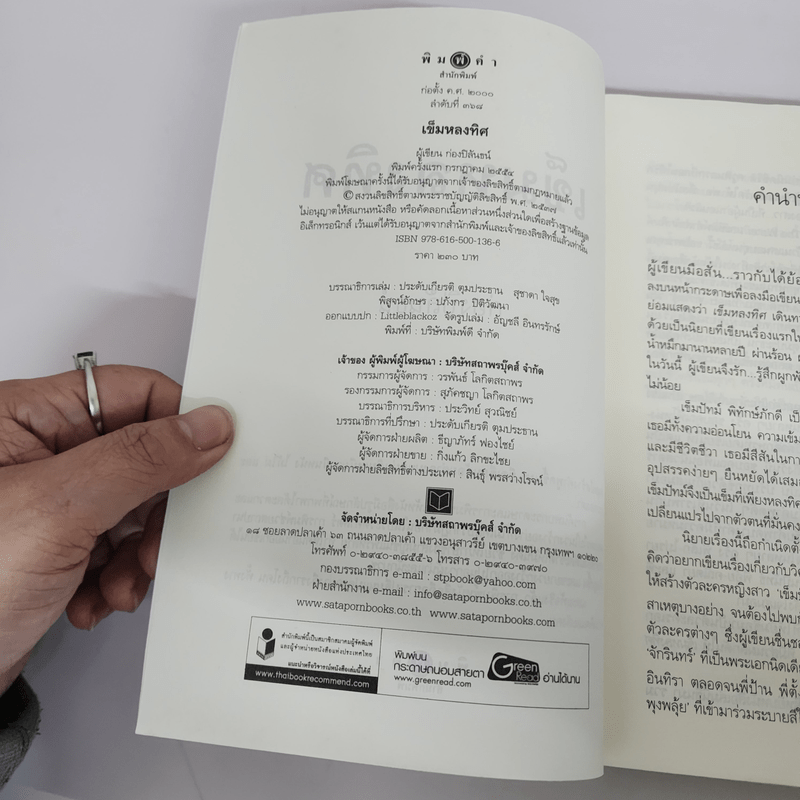 พิมพ์คำ
สำนักพิมพ์
ก่อตั้ง ค.ศ. ๒๐๐๐
ลำดับที่ ๓๖๘
เข็มหลงทิศ
ผู้เขียน ก่องปิลันธน์
พิมพ์ครั้งแรก กรกฎาคม ๒๕๕๔
พิมพ์โฆษณาครั้งนี้ได้รับอนุญาตจากเจ้าของลิขสิทธิ์ตามกฎหมายแล้ว
© สงวนลิขสิทธิ์ตามพระราชบัญญัติลิขสิทธิ์ พ.ศ. ๒๕๓๗
ไม่อนุญาตให้สแกนหนังสือ หรือคัดลอกเนื้อหาส่วนหนึ่งส่วนใดเพื่อสร้างฐานข้อมูล
อิเล็กทรอนิกส์ เว้นแต่ได้รับอนุญาตจากสำนักพิมพ์และเจ้าของลิขสิทธิ์แล้วเท่านั้น
ISBN 978-616-500-136-6
ราคา ๒๓๐ บาท
บรรณาธิการเล่ม : ประดับเกียรติ ตุมประธาน สุชาดา ใจสุข
พิสูจน์อักษร : ปภังกร ปิติวัฒนา
ออกแบบปก : Littleblackoz จัดรูปเล่ม : อัญชลี อินทรรักษ์
พิมพ์ที่ : บริษัทพิมพ์ดี จำกัด
เจ้าของ ผู้พิมพ์ผู้โฆษณา : บริษัทสถาพรบุ๊คส์ จำกัด
กรรมการผู้จัดการ : วรพันธ์ โลกิตสถาพร
รองกรรมการผู้จัดการ : สุภัคชญา โลกิตสถาพร
บรรณาธิการบริหาร : ประวิทย์ สุวณิชย์
บรรณาธิการที่ปรึกษา : ประดับเกียรติ ตุมประธาน
ผู้จัดการฝ่ายผลิต : ธีญาภัทร์ ฟองไชย์
ผู้จัดการฝ่ายขาย : กิ่งแก้ว ลิกขะไชย
ผู้จัดการฝ่ายลิขสิทธิ์ต่างประเทศ : สินธุ์ พรสว่างโรจน์
จัดจำหน่ายโดย : บริษัทสถาพรบุ๊คส์ จำกัด
๑๘ ซอยลาดปลาเค้า ๖๓ ถนนลาดปลาเค้า แขวงอนุสาวรีย์ เขตบางเขน กรุงเทพฯ ๑๐๒๒๐
โทรศัพท์ ๐-๒๙๔๐-๓๘๕๕-๖ โทรสาร ๐-๒๙๔๐-๓๙๗๐
กองบรรณาธิการ e-mail : stpbook@yahoo.com
ฝ่ายสำนักงาน e-mail : info@satapornbooks.com
www.satapornbooks.co.th www.satapornbooks.com
สำนักพิมพ์นี้เป็นสมาชิกสมาคมผู้จัดพิมพ์
และผู้จำหน่ายหนังสือแห่งประเทศไทย
แนะนำหรือวิจารณ์หนังสือเล่มนี้ได้ที่
www.thaibookrecommend.com
พิมพ์บน
กระดาษถนอมสายตา
www.greenread.com
Green Read
อ่านได้นาน
คำนำ
ผู้เขียนมือสั่น...ราวกับได้ย้อ
ลงบนหน้ากระดาษเพื่อลงมือเขียน
ย่อมแสดงว่า เข็มหลงทิศ เดินท
ด้วยเป็นนิยายที่เขียนเรื่องแรกใ
น้ำหมึกมานานหลายปี ผ่านร้อน
ในวันนี้ ผู้เขียนจึงรัก...รู้สึกผูกพั
ไม่น้อย
เข็มปัทม์ พิทักษ์ภักดี เป็
เธอมีทั้งความอ่อนโยน ความเข้ม
และมีชีวิตชีวา เธอมีสีสันในกา
อุปสรรคง่ายๆ ยืนหยัดได้เสมอ
เข็มปัทม์จึงเป็นเข็มที่เพียงหลงทิศ
เปลี่ยนแปรไปจากตัวตนที่มั่นคง
นิยายเรื่องนี้ถือกำเนิดตั้ง
คิดว่าอยากเขียนเรื่องเกี่ยวกับวิค
ให้สร้างตัวละครหญิงสาว ‘เข็มปั
สาเหตุบางอย่าง จนต้องไปพบกั
ตัวละครต่างๆ ซึ่งผู้เขียนชื่นช
‘จักรินทร์’ ที่เป็นพระเอกนิดเดีย
อินทิรา ตลอดจนพี่ป้าน พี่ตั้ง
พุงพลุ้ย’ ที่เข้ามาร่วมระบายสีใ